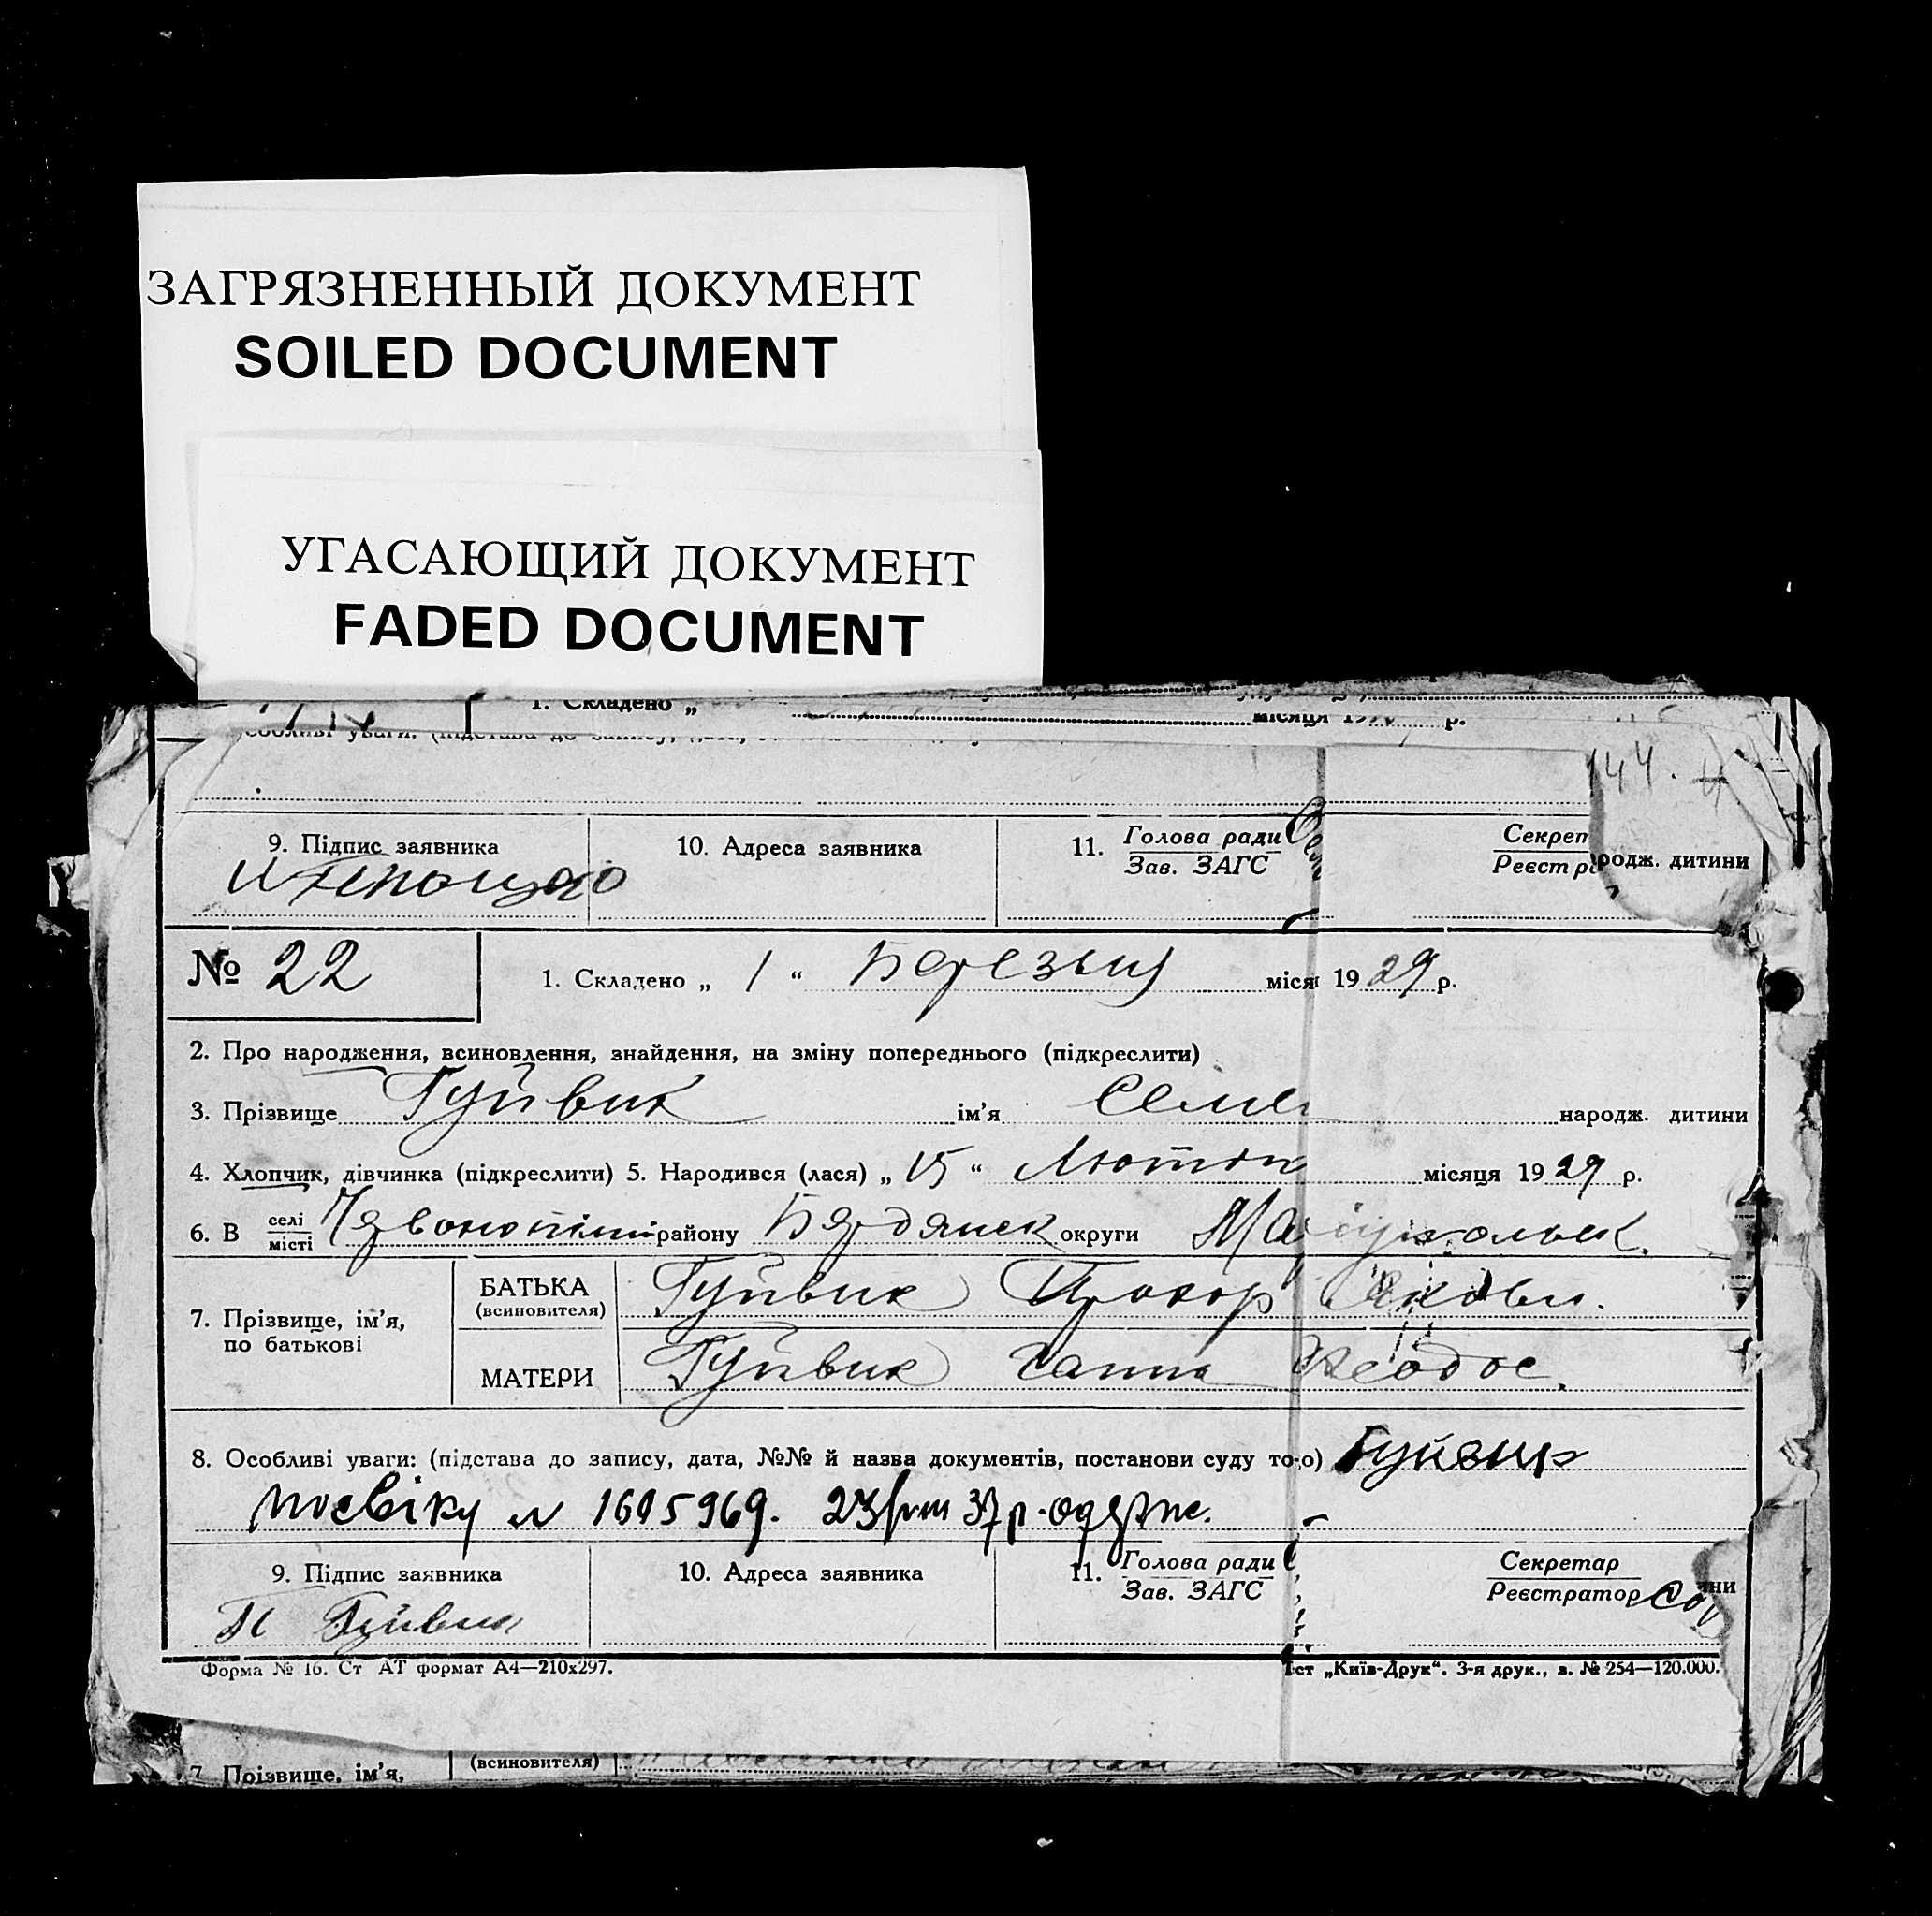 ЗАГРЯЗНЕННЫЙ ДОКУМЕНТ
SOILED DOCUMENT
УГАСАЮЩИЙ ДОКУМЕНТ
FADED DOCUMENT
1. Складено „ місяця р.
144.
9. Підпис заявника 10. Адреса заявника 11. Голова ради Зав. ЗАГС Секрет Реєстр
родж. дитини
№ 22 1. Складено „ 1 “ Березня міся 19 29 р.
2. Про народження, всиновлення, знайдення, на зміну попереднього (підкреслити)
3. Прізвище Гуйвик ім'я Семен народж. дитини
4. Хлопчик, дівчинка (підкреслити) 5. Народився (лася) „ 15 “ Лютня місяця 19 29 р.
6. В селі місті району Бердянск округи
7. Прізвище, ім'я, по батькові
БАТЬКА (всиновителя) Гуйвик Прохор Якови.
МАТЕРИ Гуйвик Ганна Феодос.
8. Особливі уваги: (підстава до запису, дата, №№ й назва документів, постанови суду то о) Гуйвик
1695969. 37 р.
9. Підпис заявника 10. Адреса заявника 11. Голова ради Зав. ЗАГС Секретар Реєстратор
ни
П Гуйвик
Форма № 16. Ст АТ формат А4—210х297. ст „Київ-Друк“. 3-я друк., з. № 254—120.000.
7. Прізвище, ім'я, (всиновителя)